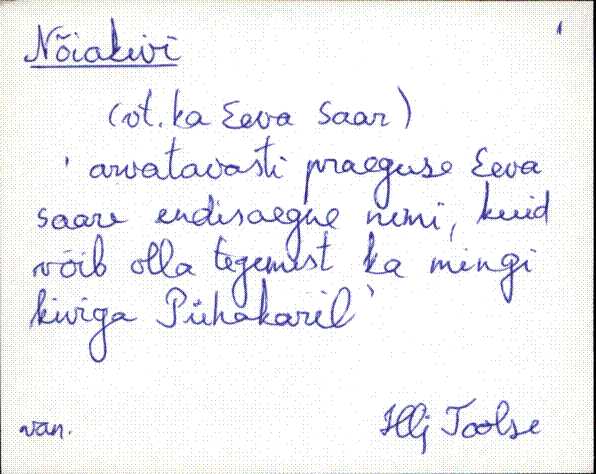 Nõiakivi
(vt. ka Eeva saar)
' arvatavasti praeguse Eeva
saare endisaegne nimi, kuid
võib olla tegemist ka mingi
kiviga Pühakaril '
van.
Hlj Toolse